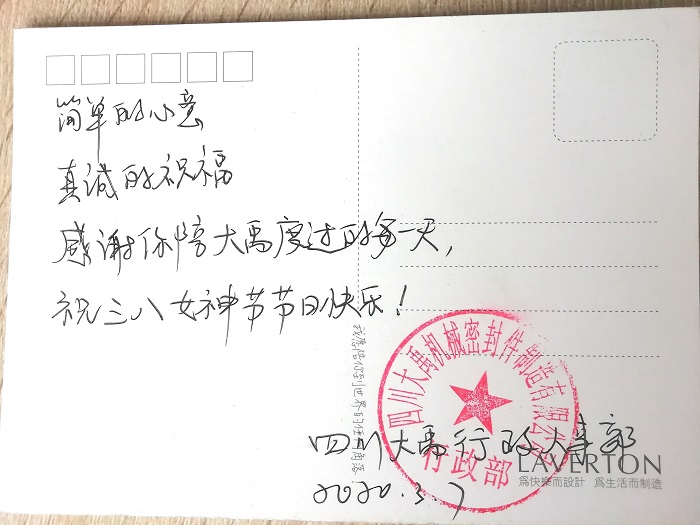 简单的心意
真诚的祝福
感谢你陪大禹度过的每一天，
祝三八女神节节日快乐！
我愿陪你到世界的任何角落
四川大禹机械密封件制造有限公司
行政部
四川大禹行政人事部
2020.3.7
LAVERTON
爲快樂而設計 爲生活而制造